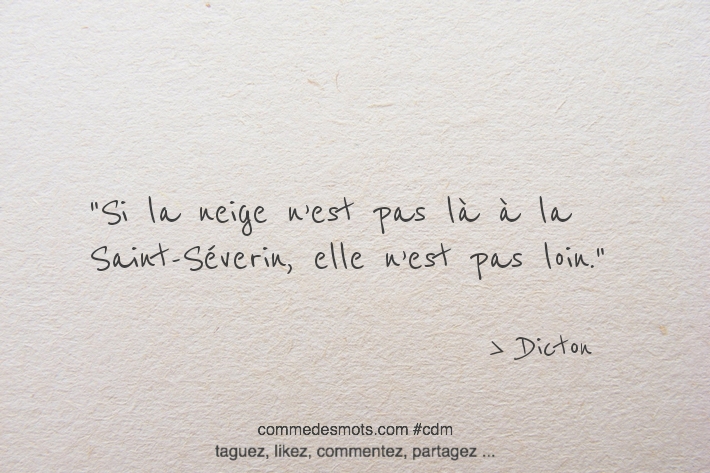 "Si la neige n'est pas là à la
Saint-Séverin, elle n'est pas loin."
> Dicton
commedesmots.com #cdm
taguez, likez, commentez, partagez ...